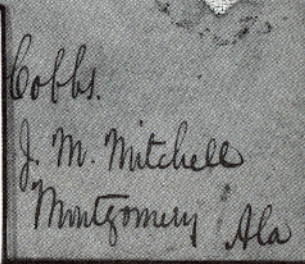 Cobbs.
J. M. Mitchell
Montgomery Ala